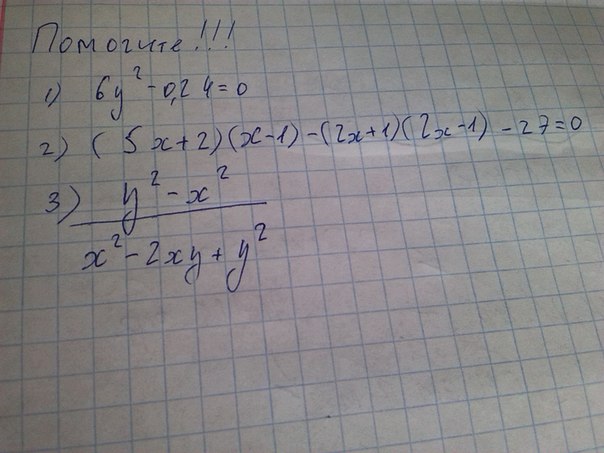 Помогите!!!
1) 6y² - 0,24 = 0
2) (5x+2)(x-1) - (2x+1)(2x-1) - 27 = 0
3) y² - x²
x² - 2xy + y²